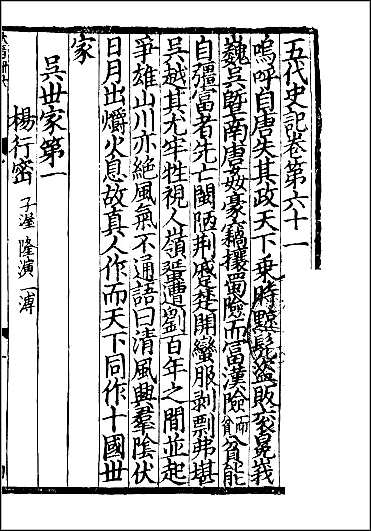 五代史記卷第六十一
嗚呼自唐失其政天下乗時黥髡盜販袞冕峩
巍吳曁南唐姦豪竊攘蜀險而富漢險而貧貧能
自彊富者先亡閩陋荆蹙楚開蠻服剥剽弗堪
吳越其尤牢牲視人嶺蜑遭劉百年之間並起
爭雄山川亦絶風氣不通語曰清風興羣陰伏
日月出爝火息故真人作而天下同作十國丗
家
吳丗家第一
楊行密 子渥 隆演 溥